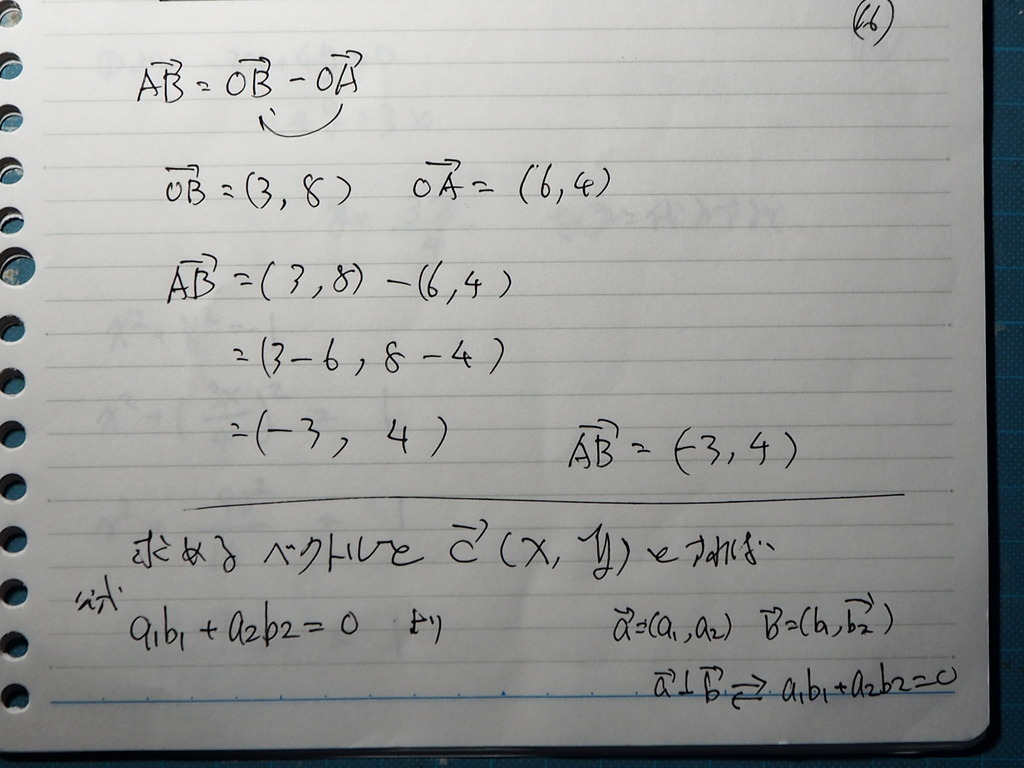 (16)
AB→ = OB→ - OA→
OB→ = (3, 8) OA→ = (6, 4)
AB→ = (3, 8) - (6, 4)
= (3 - 6, 8 - 4)
= (-3, 4) AB→ = (-3, 4)
求めるベクトルを c→ (x, y) とすれば
公式
a1b1 + a2b2 = 0 より a→ = (a1, a2) B→ = (b1, b2→)
a→ ⊥ b→ ⇄ a1b1 + a2b2 = 0